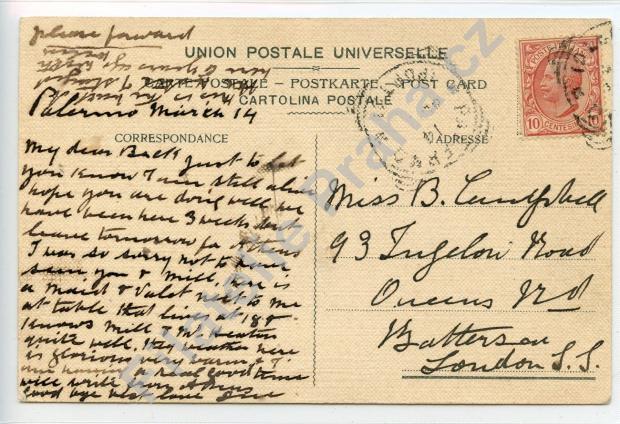 please forward
UNION POSTALE UNIVERSELLE
CARTE POSTALE – POSTKARTE – POST CARD
CARTOLINA POSTALE
Palermo March 14
CORRESPONDANCE
ADRESSE
POSTE ITALIANE
10 CENTESIMI
My dear Back just to let
you know I am still alive
hope you are doing well we
have been here 3 weeks but
leave tomorrow for Athens
I was so sorry not to have
seen you & Mill, here is
a maid & valet next to me
at table that lives at 18
knows Mill & Mr
quite well, the weather here
is glorious very warm &
a real good time
will write from Athens
good bye best love
Miss B. Campbell
93 Ingelow Road
Queens Rd
Battersea
London S.S.
Filatelie Praha.cz